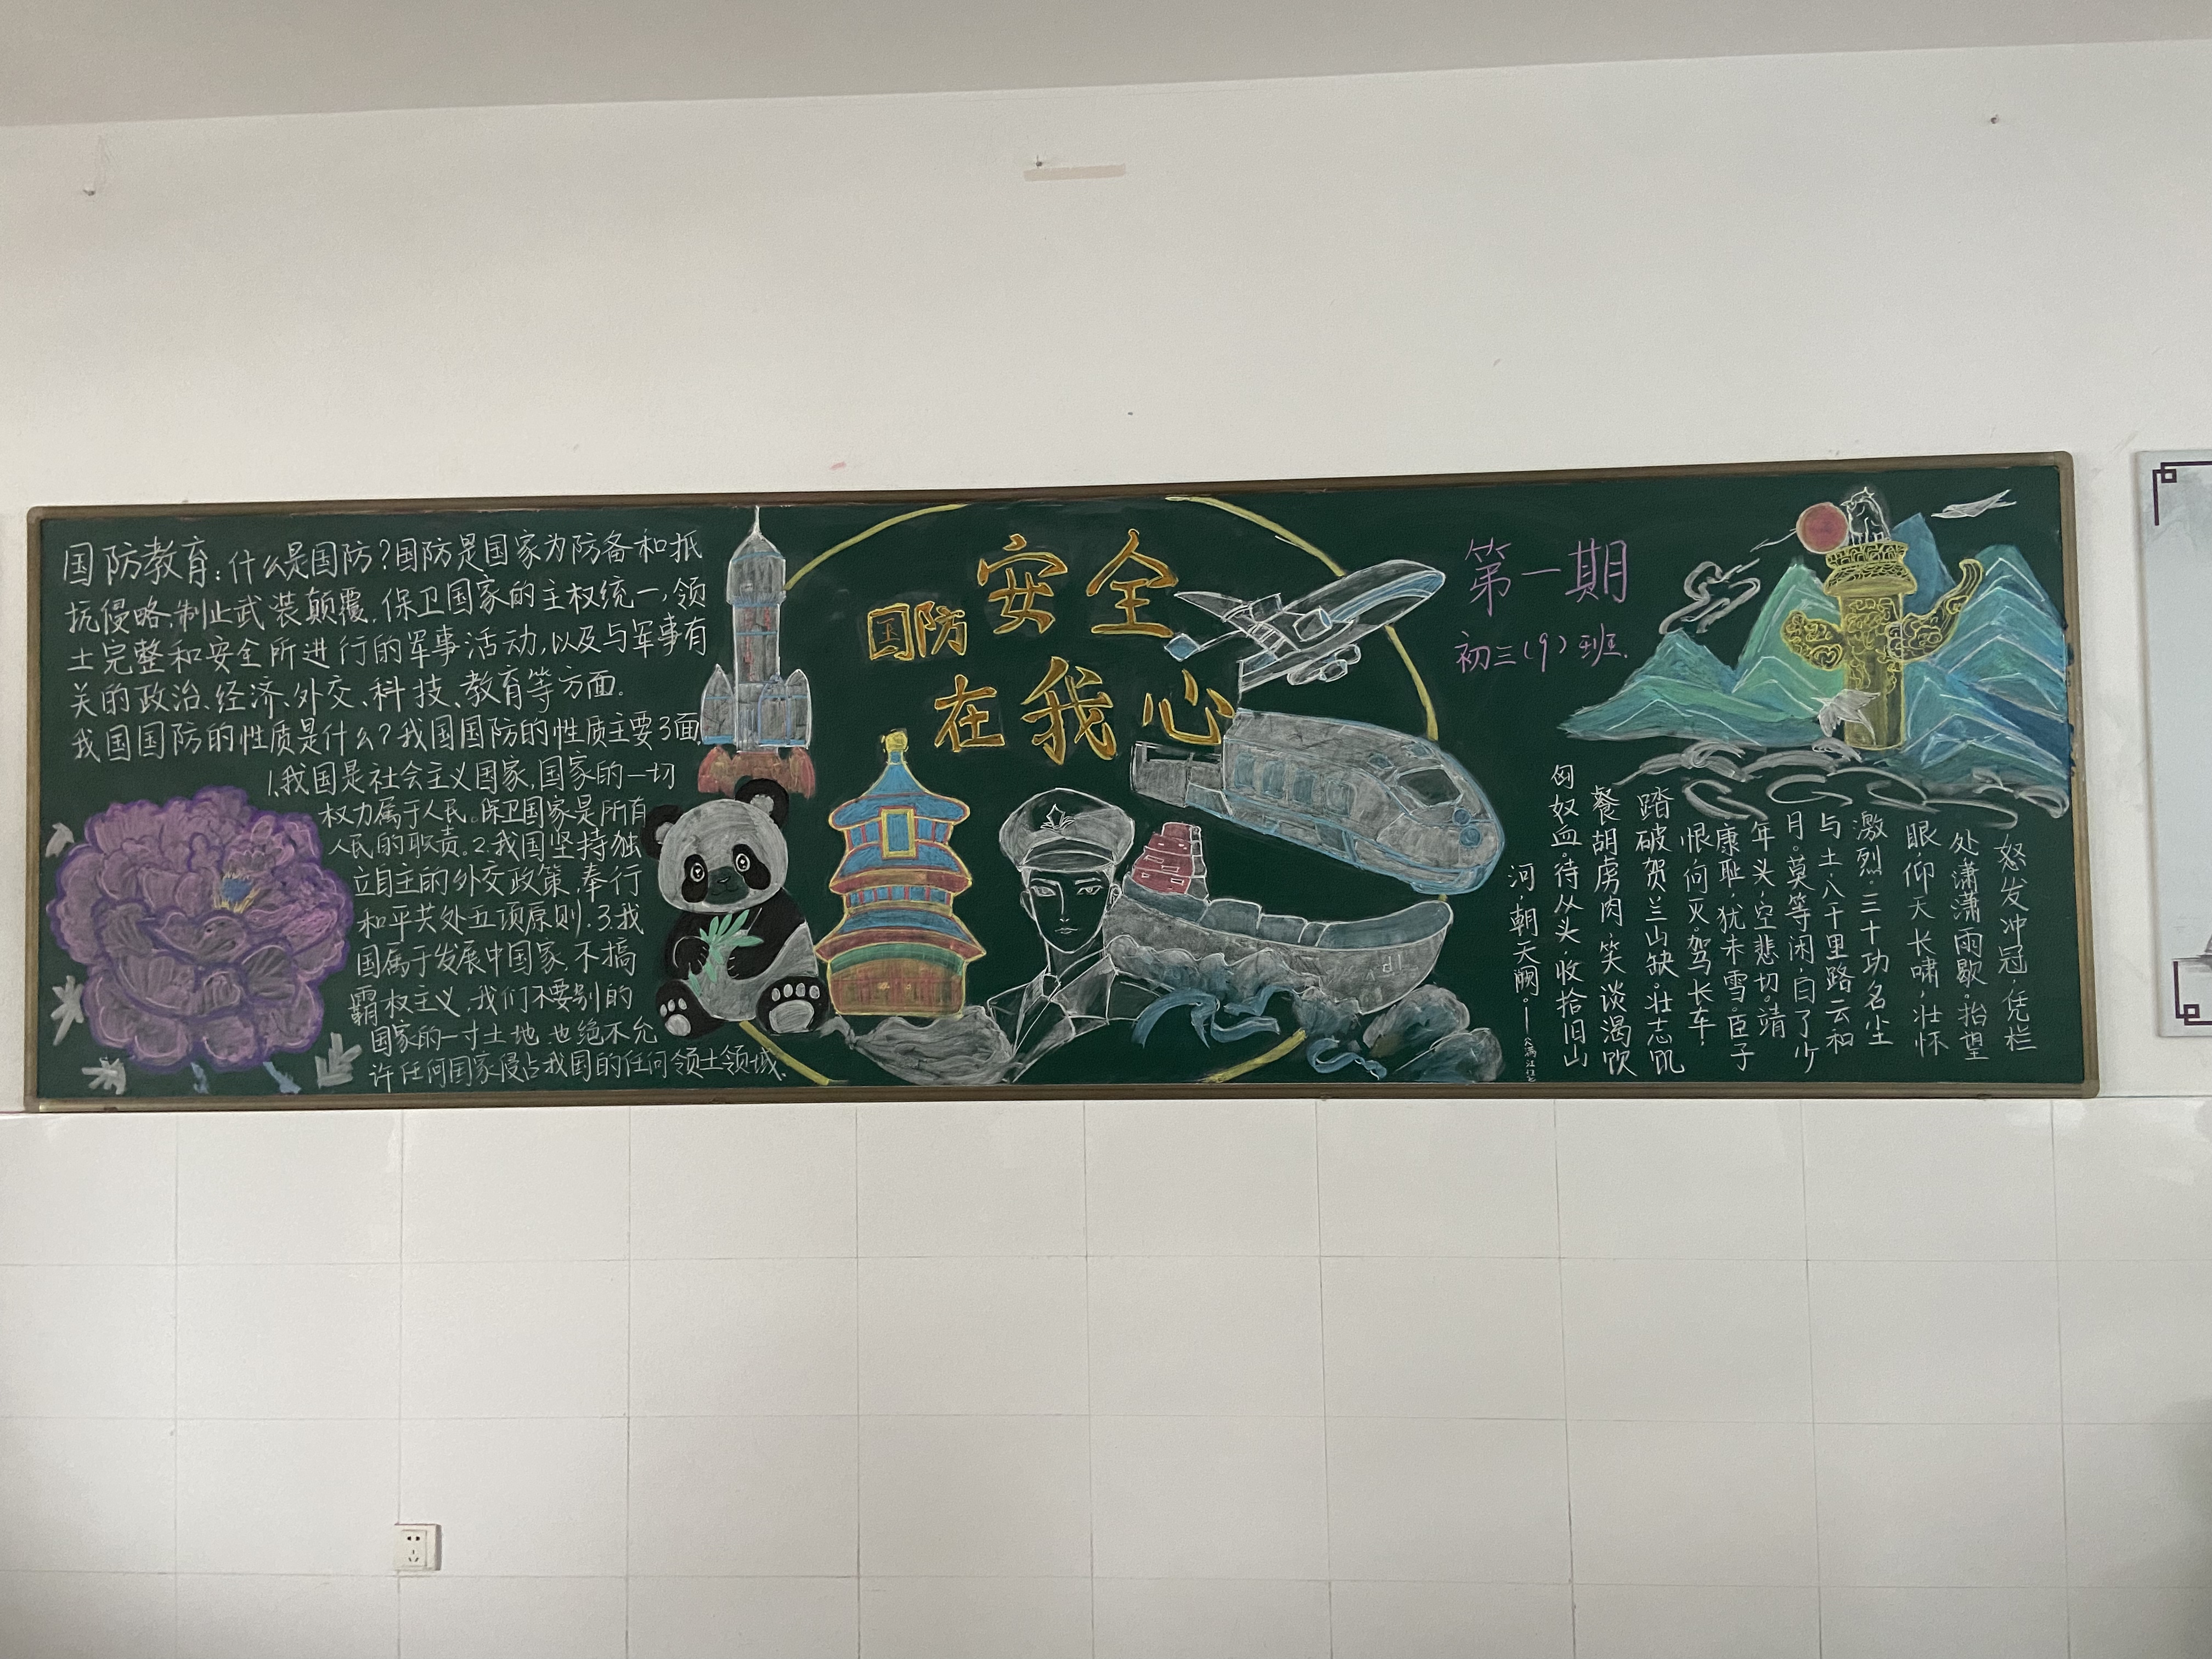 国防教育:什么是国防?国防是国家为防备和抵
抗侵略,制止武装颠覆,保卫国家的主权统一,领
土完整和安全所进行的军事活动,以及与军事有
关的政治、经济、外交、科技、教育等方面。
我国国防的性质是什么?我国国防的性质主要3面,
1.我国是社会主义国家,国家的一切
权力属于人民。保卫国家是所有
人民的职责。2.我国坚持独
立自主的外交政策,奉行
和平共处五项原则.3.我
国属于发展中国家,不搞
霸权主义,我们不要别的
国家的一寸土地,也绝不允
许任何国家侵占我国的任何领土领域.
国防安全
在我心
第一期
初三(9)班.
怒发冲冠,凭栏
处潇潇雨歇。抬望
眼仰天长啸,壮怀
激烈。三十功名尘
与土,八千里路云和
月。莫等闲,白了少
年头,空悲切。靖
康耻,犹未雪。臣子
恨,何时灭。驾长车,
踏破贺兰山缺。壮志饥
餐胡虏肉,笑谈渴饮
匈奴血。待从头,收拾旧山
河,朝天阙。——《满江红》